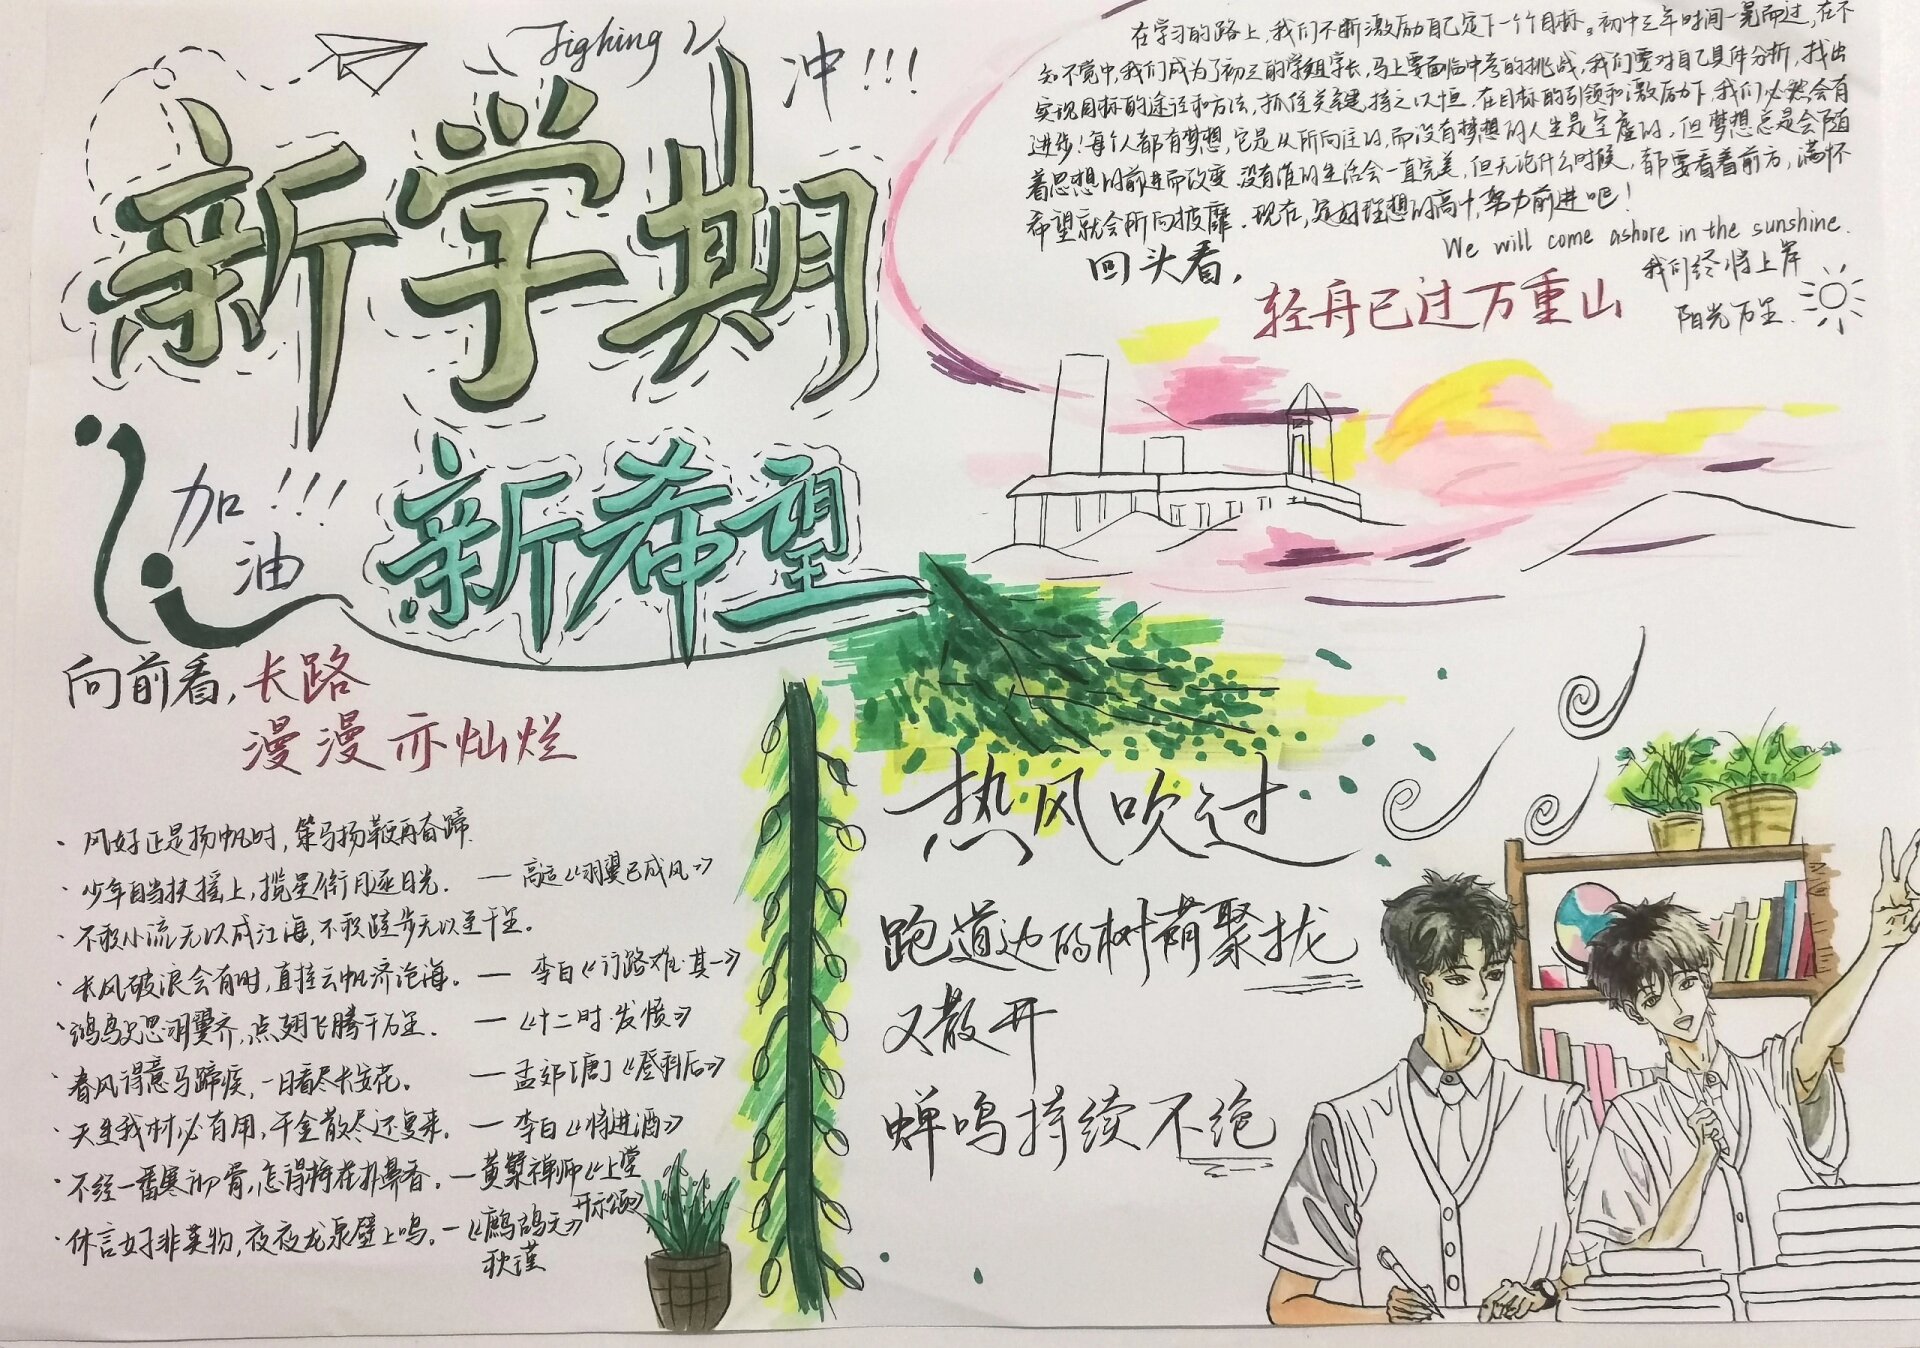 Fighing
冲!!!
新学期
加油!!!
新希望
在学习的路上,我们不断激励自己定下一个个目标。初中三年时间一晃而过,在不
知不觉中,我们成为了初三的学姐学长,马上要面临中考的挑战,我们要对自己具体分析,找出
实现目标的途径和方法,抓住关键,持之以恒.在目标的引领和激励下,我们必然会有
进步!每个人都有梦想,它是人所向往的,而没有梦想的人生是空虚的,但梦想总是会随
着思想的前进而改变.没有谁的生活会一直完美,但无论什么时候,都要看着前方,满怀
希望就会所向披靡.现在,定好理想的高中,努力前进吧!
We will come ashore in the sunshine.
我们终将上岸
阳光万里.
回头看,
轻舟已过万重山
向前看,长路
漫漫亦灿烂
·风好正是扬帆时,策马扬鞭再奋蹄.
·少年自当扶摇上,揽星衔月逐日光. —高运《羽翼已成风》
·不积小流无以成江海,不积跬步无以至千里。
·长风破浪会有时,直挂云帆济沧海。—李白《行路难·其一》
·鸿鸟只思羽翼齐,点翅飞腾千万里. —《十二时·发愤》
·春风得意马蹄疾,一日看尽长安花。 —孟郊[唐]《登科后》
·天生我材必有用,千金散尽还复来。—李白《将进酒》
·不经一番寒彻骨,怎得梅花扑鼻香。—黄檗禅师《上堂
开示颂》
·休言女子非英物,夜夜龙泉壁上鸣。—《鹧鸪天》
秋瑾
热风吹过
跑道边的树荫聚拢
又散开
蝉鸣持续不绝